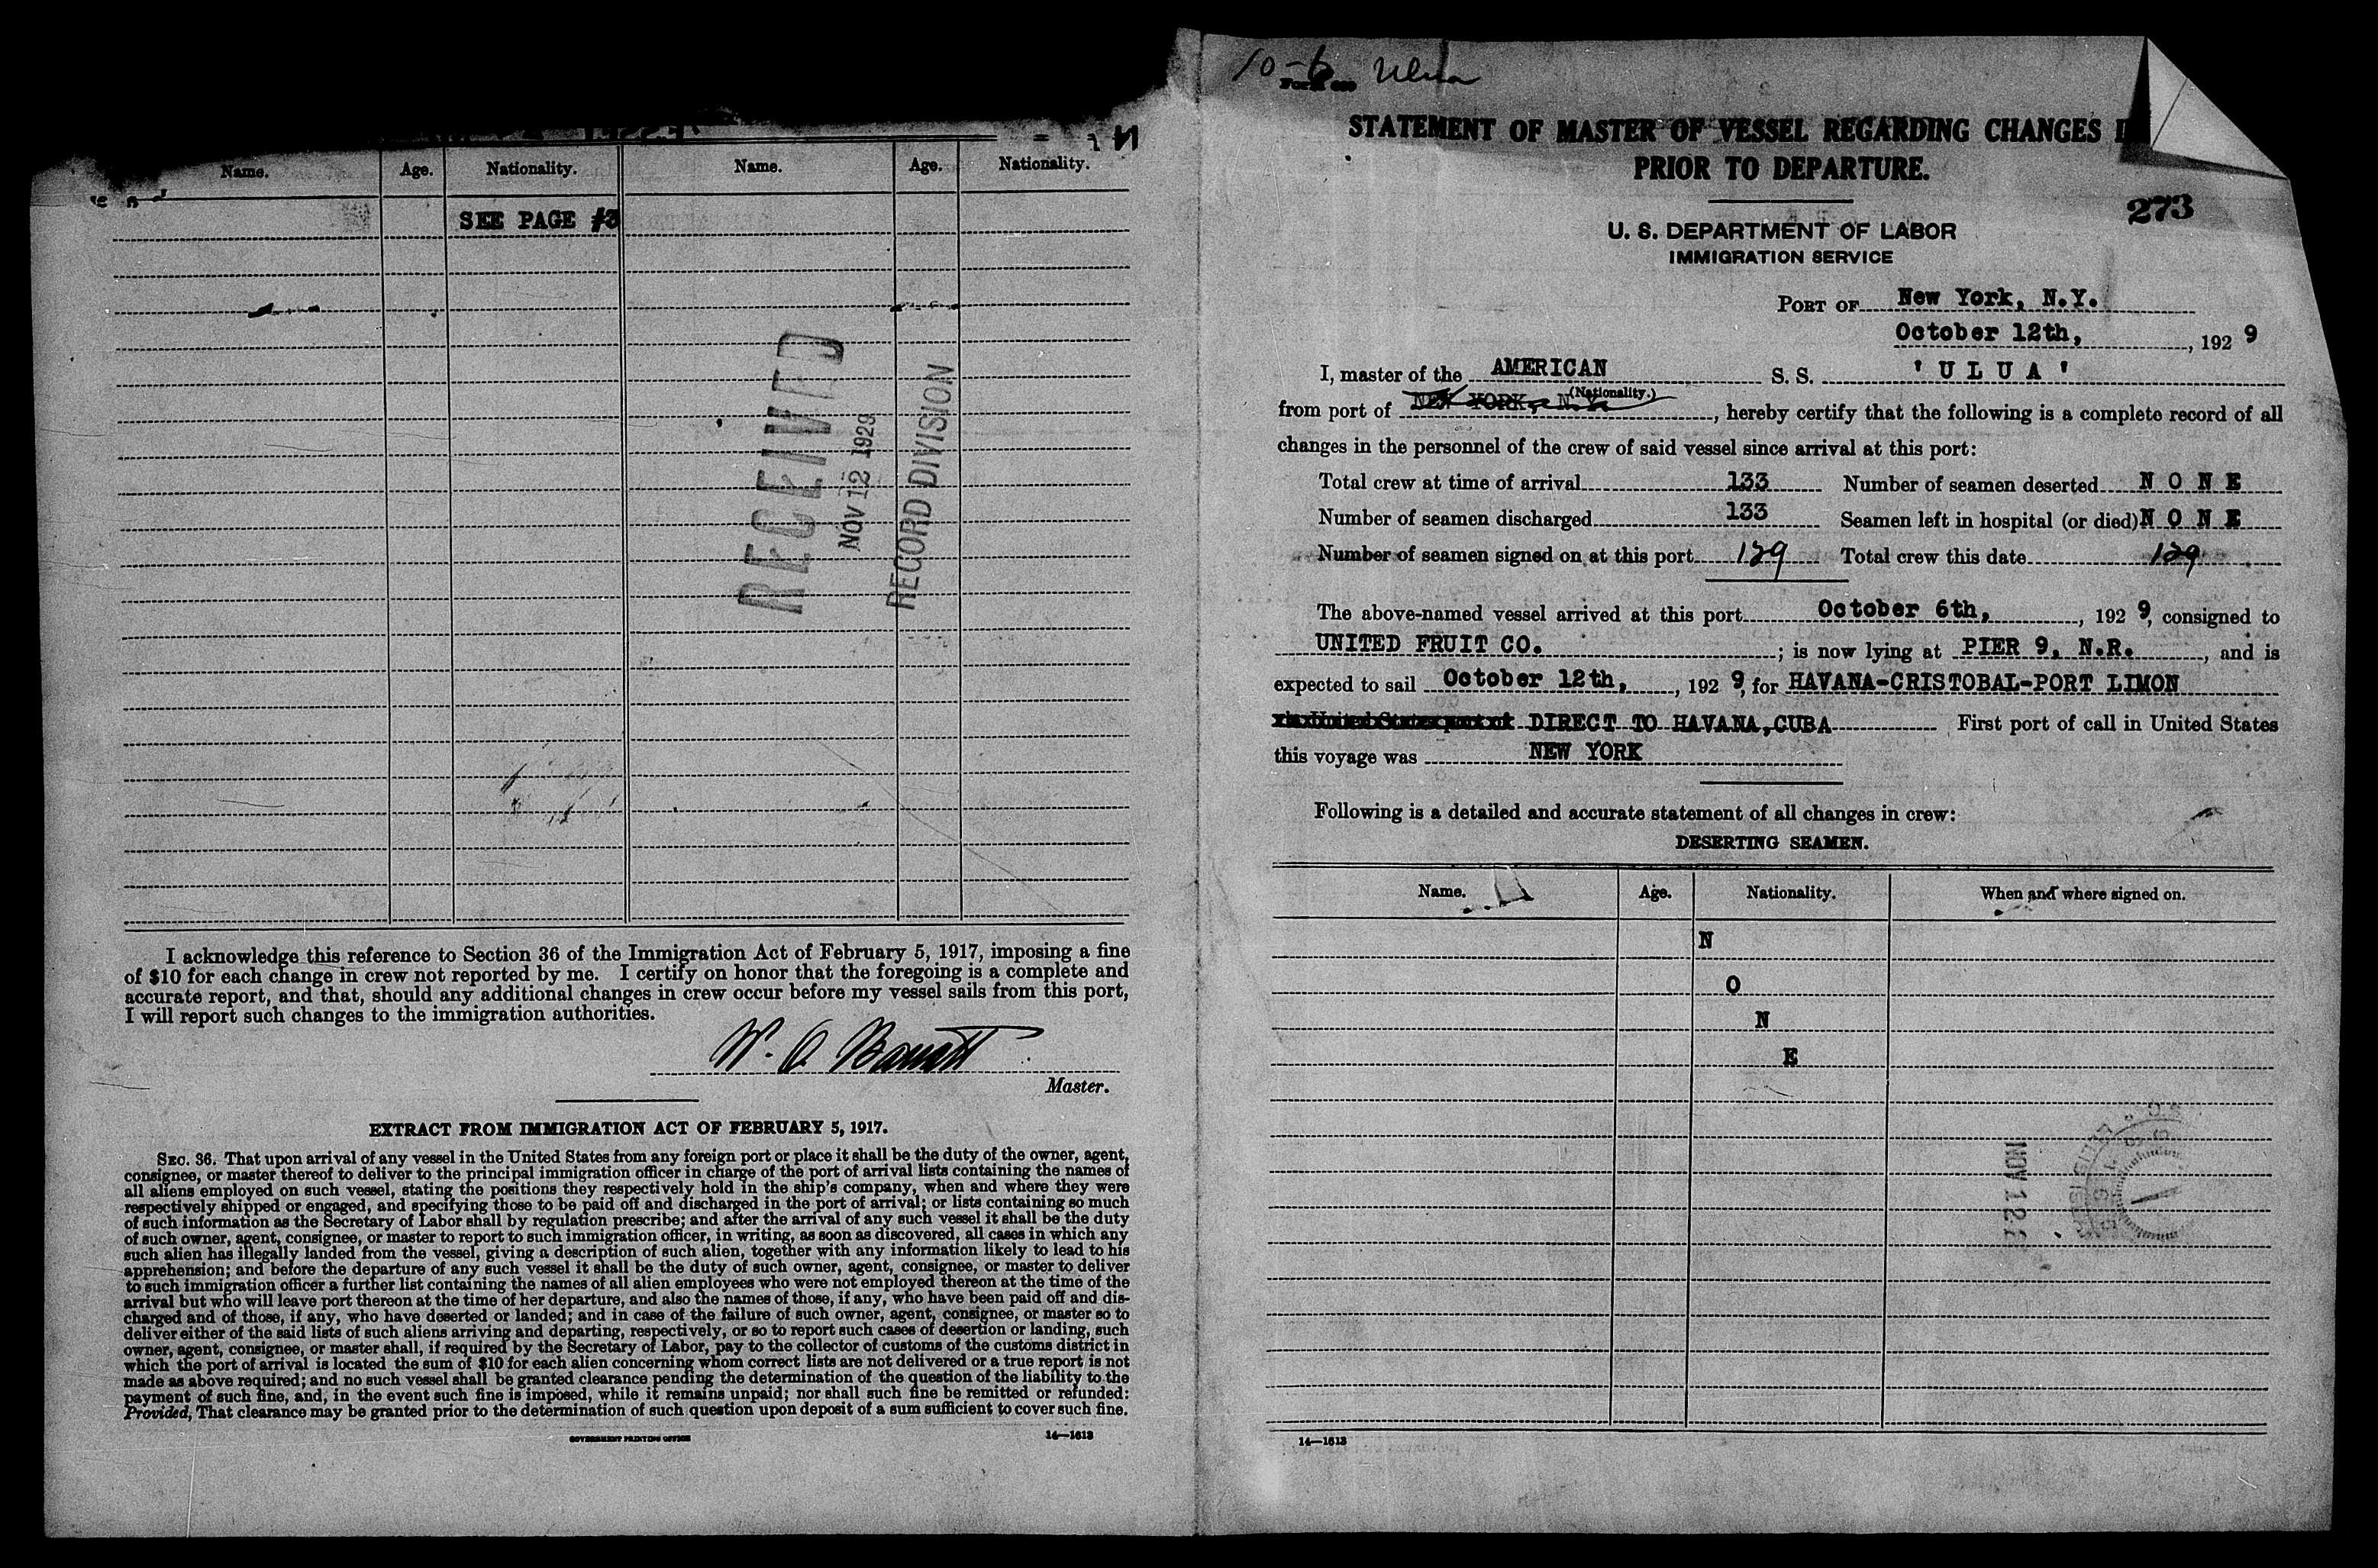 Name. Age. Nationality. Name. Age. Nationality.
SEE PAGE #3
RECEIVED
NOV 12 1929
RECORD DIVISION
I acknowledge this reference to Section 36 of the Immigration Act of February 5, 1917, imposing a fine
of $10 for each change in crew not reported by me. I certify on honor that the foregoing is a complete and
accurate report, and that, should any additional changes in crew occur before my vessel sails from this port,
I will report such changes to the immigration authorities.
W. O
Master.
EXTRACT FROM IMMIGRATION ACT OF FEBRUARY 5, 1917.
SEC. 36. That upon arrival of any vessel in the United States from any foreign port or place it shall be the duty of the owner, agent,
consignee, or master thereof to deliver to the principal immigration officer in charge of the port of arrival lists containing the names of
all aliens employed on such vessel, stating the positions they respectively hold in the ship's company, when and where they were
respectively shipped or engaged, and specifying those to be paid off and discharged in the port of arrival; or lists containing so much
of such information as the Secretary of Labor shall by regulation prescribe; and after the arrival of any such vessel it shall be the duty
of such owner, agent, consignee, or master to report to such immigration officer, in writing, as soon as discovered, all cases in which any
such alien has illegally landed from the vessel, giving a description of such alien, together with any information likely to lead to his
apprehension; and before the departure of any such vessel it shall be the duty of such owner, agent, consignee, or master to deliver
to such immigration officer a further list containing the names of all alien employees who were not employed thereon at the time of the
arrival but who will leave port thereon at the time of her departure, and also the names of those, if any, who have been paid off and dis-
charged and of those, if any, who have deserted or landed; and in case of the failure of such owner, agent, consignee, or master so to
deliver either of the said lists of such aliens arriving and departing, respectively, or so to report such cases of desertion or landing, such
owner, agent, consignee, or master shall, if required by the Secretary of Labor, pay to the collector of customs of the customs district in
which the port of arrival is located the sum of $10 for each alien concerning whom correct lists are not delivered or a true report is not
made as above required; and no such vessel shall be granted clearance pending the determination of the question of the liability to the
payment of such fine, and, in the event such fine is imposed, while it remains unpaid; nor shall such fine be remitted or refunded:
Provided, That clearance may be granted prior to the determination of such question upon deposit of a sum sufficient to cover such fine.
GOVERNMENT PRINTING OFFICE 14—1613
10-6 Ulua
Form
STATEMENT OF MASTER OF VESSEL REGARDING CHANGES
PRIOR TO DEPARTURE.
273
U. S. DEPARTMENT OF LABOR
IMMIGRATION SERVICE
PORT OF New York, N.Y.
October 12th, , 192 9
I, master of the AMERICAN S. S. 'U L U A'
(Nationality.)
from port of NEW YORK, N.Y. , hereby certify that the following is a complete record of all
changes in the personnel of the crew of said vessel since arrival at this port:
Total crew at time of arrival 133 Number of seamen deserted N O N E
Number of seamen discharged 133 Seamen left in hospital (or died) N O N E
Number of seamen signed on at this port 129 Total crew this date 129
The above-named vessel arrived at this port October 6th, , 192 9, consigned to
UNITED FRUIT CO. ; is now lying at PIER 9, N.R. , and is
expected to sail October 12th, , 192 9, for HAVANA-CRISTOBAL-PORT LIMON
via United States port of DIRECT TO HAVANA,CUBA First port of call in United States
this voyage was NEW YORK
Following is a detailed and accurate statement of all changes in crew:
DESERTING SEAMEN.
Name. Age. Nationality. When and where signed on.
N
O
N
E
NOV 12
14—1613